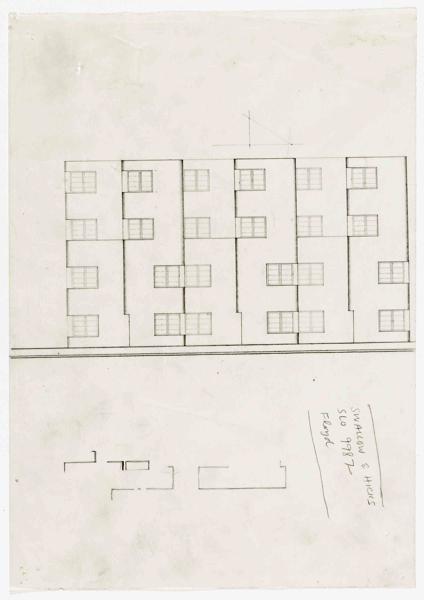 SWALLOW & HICKS
SLO 9987
Floyd